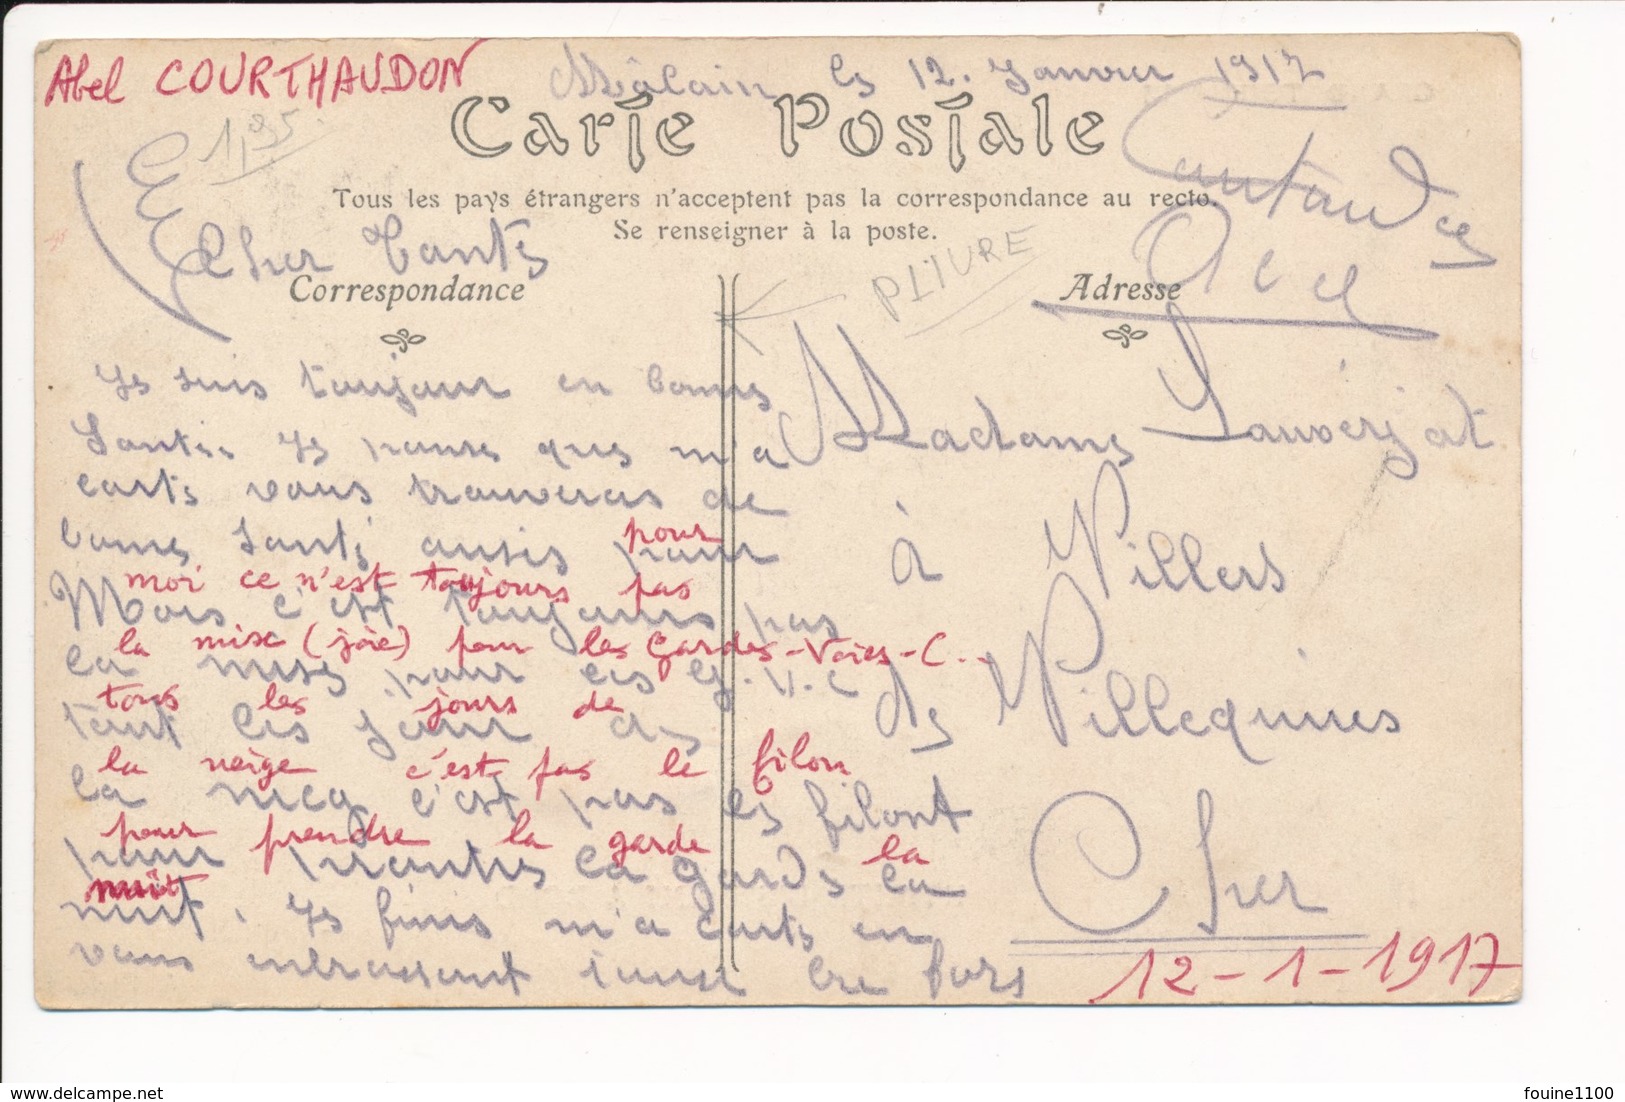 Abel COURTHAUDON
Mâlain le 12. Janvier 1917
1,95
Carte Postale
Tous les pays étrangers n'acceptent pas la correspondance au recto.
Se renseigner à la poste.
Cher Tante
Correspondance
PLIURE
Adresse
Courtaud
Abel
Je suis toujour en bonne
Santé. Je panse que m'a
carte vous trouveras de
bonne Santé ausis pour
pour
moi ce n'est toujours pas
Mois c'est toujours pas
la mise (joie) pour les Gardes-Voies-C..
la mise pour les G.V.C
tous les jours de
tout les jour de
la neige c'est pas le filon
la neg c'est pas le filont
pour prendre la garde la
pour prantre la garde la
nuit
nuit. Je finis m'a carte en
vous enbrassent
bien fors
Madame Lauverjat
à Villers
de Villequiers
Cher
12-1-1917
www.delcampe.net
fouine1100